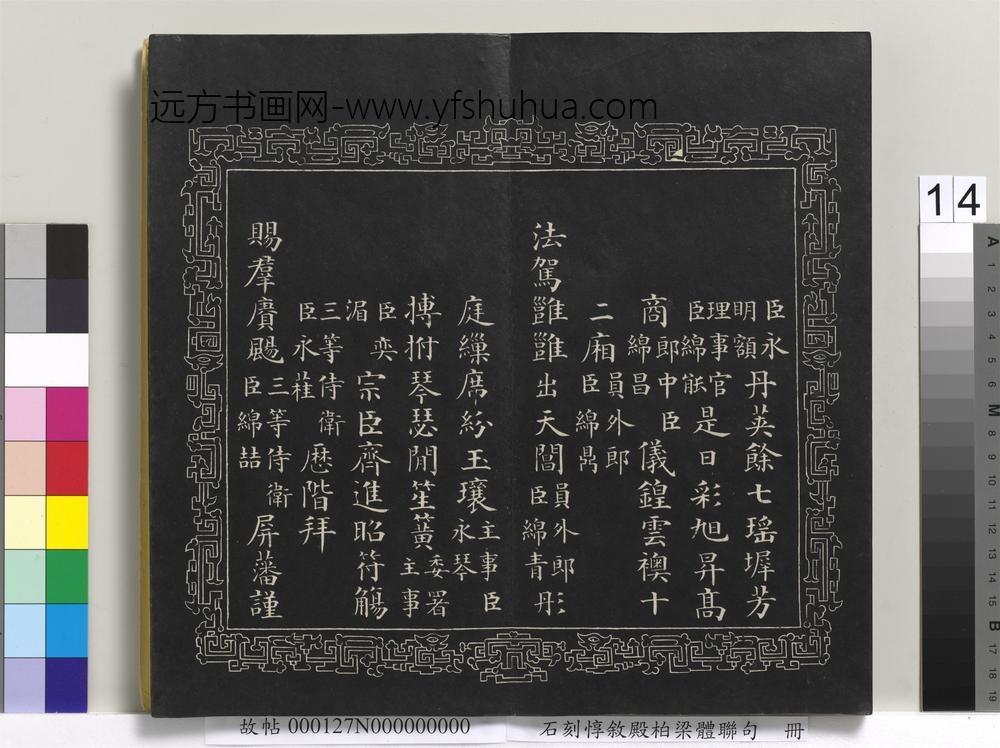 远方书画网-www.yfshuhua.com
臣永明額丹英餘七瑤墀芳
理事官臣綿是日彩旭昇髙
商郎中臣綿昌儀鍠雲襖十
二廂員外郎臣綿
法駕雝雝出天閶員外郎臣綿青彤
庭繅席紛玉瓖主事臣永琴
搏拊琴瑟閒笙簧委署主事
臣奕湄宗臣齊進昭符觴
三等侍衛臣永歷階拜
賜羣賡颺三等侍衛臣綿喆屏藩謹
14
故帖 000127N000000000
石刻惇敘殿柏梁體聯句 冊
A 1 2 3 4 5 6 M 8 9 10 11 12 13 14 15 B 17 18 19